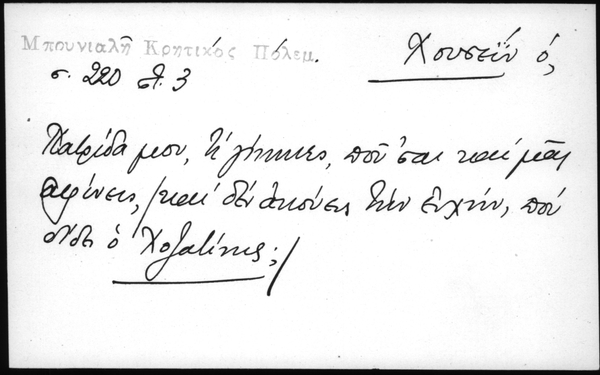 Μπουνιαλῆ Κρητικὸς Πόλεμ.
σ. 220 στ. 3
Χουσεΐν ὁ,
Πατρίδα μου, τί γίνηκες, ποῦ 'σαι καὶ μᾶς
ἀφίνεις, / καὶ δὲν ἀκούεις τὴν εὐχήν, ποὺ
ὁ Χοζατίνης; /